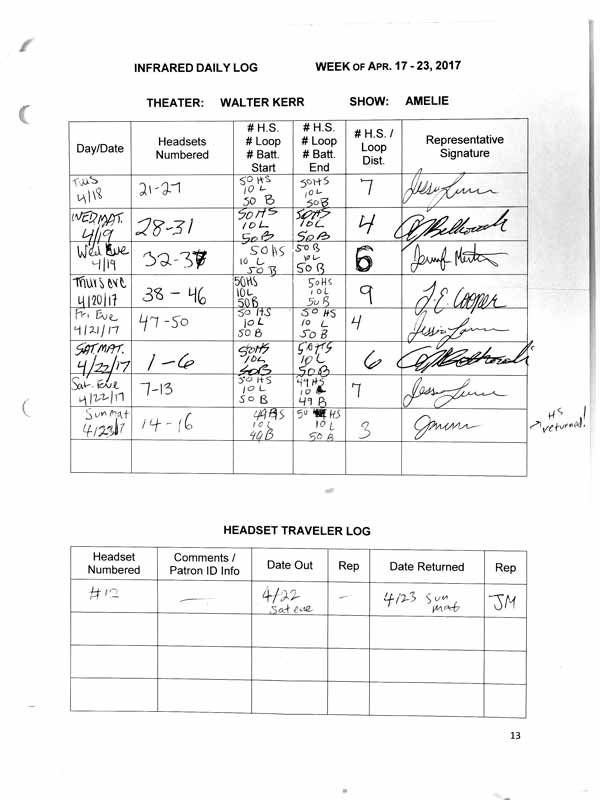 INFRARED DAILY LOG WEEK OF APR. 17 - 23, 2017
THEATER: WALTER KERR SHOW: AMELIE
Day/Date Headsets Numbered # H.S. # Loop # Batt. Start # H.S. # Loop # Batt. End # H.S. / Loop Dist. Representative Signature
Tues 4/18 21-27 50 HS 10 L 50 B 50 HS 10 L 50 B 7
WED MAT. 4/19 28-31 50 HS 10 L 50 B 50 HS 10 L 50 B 4
Wed Eve 4/19 32-37 50 HS 10 L 50 B 50 B 10 L 50 B 6
Thurs eve 4/20/17 38-46 50HS 10L 50B 50HS 10L 50B 9 J.E. COOPER
Fri Eve 4/21/17 47-50 50 HS 10 L 50 B 50 HS 10 L 50 B 4
SAT MAT. 4/22/17 1-6 50HS 10L 50B 50HS 10L 50B 6
Sat. Eve 4/22/17 7-13 50 HS 10 L 50 B 49 HS 10 L 49 B 7
Sun Mat 4/23/17 14-16 49 HS 10 L 49 B 50 HS 10 L 50 B 3
HS returned!
HEADSET TRAVELER LOG
Headset Numbered Comments / Patron ID Info Date Out Rep Date Returned Rep
#12 — 4/22 Sat eve — 4/23 Sun mat JM
13